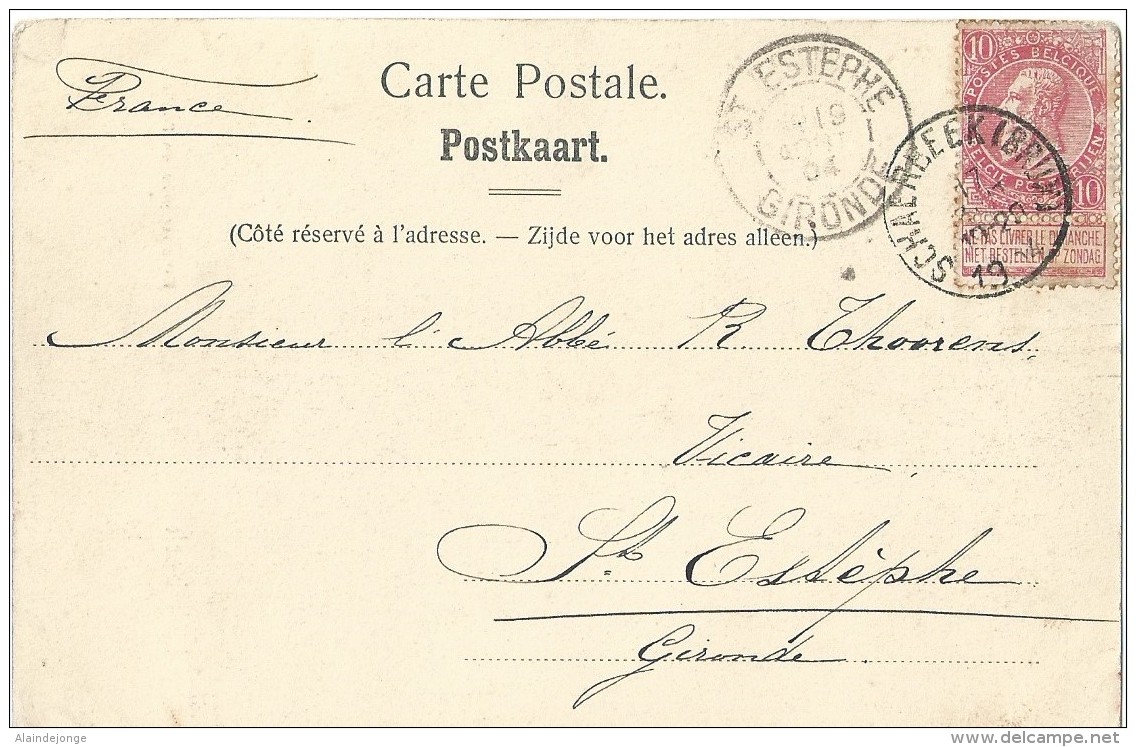 France
Carte Postale.
Postkaart.
(Côté réservé à l'adresse. — Zijde voor het adres alleen.)
ST ESTEPHE
19
04
GIRONDE
10
POSTES BELGIQUE
10
NE PAS LIVRER LE DIMANCHE
NIET BESTELLEN OP ZONDAG
SCHAERBEEK (BRUX.)
19
Monsieur l'Abbé R. Thoorens,
Vicaire
St. Estèphe
Gironde.
Alaindejonge
www.delcampe.net